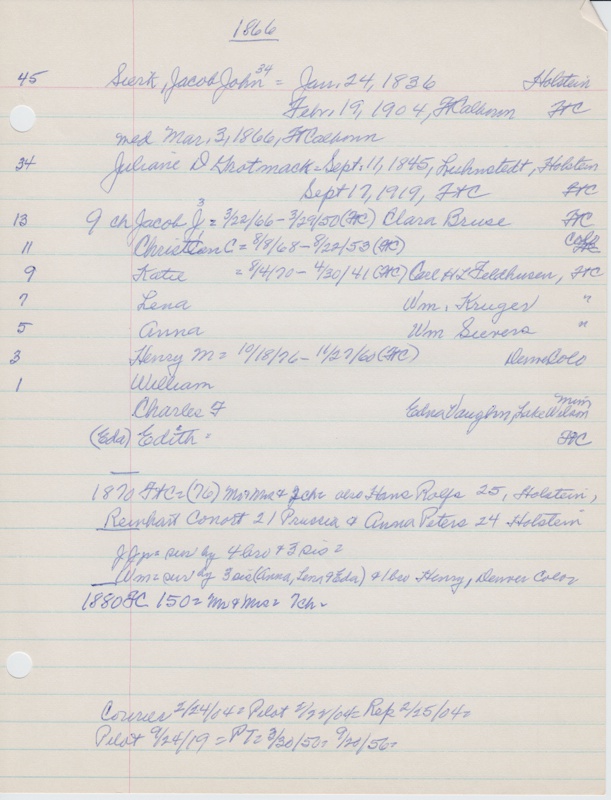 1866
45 Sierk, Jacob John 34 = Jan. 24, 1836 Holstein
Febr. 19, 1904, Ft Calhoun FtC
med Mar. 3, 1866, Ft Calhoun
34 Juliane D Grotmack = Sept. 11, 1845, Luhnstedt, Holstein
Sept 17, 1919, FtC FtC
13 9 ch Jacob J 3 = 3/22/66 - 3/29/50 (FtC) Clara Bruse FtC
11 Christian C = 8/8/68 - 8/22/53 (FtC) Colo
9 Katie = 8/4/70 - 4/30/41 (FtC) Carl H L Feldhusen, FtC
7 Lena Wm. Kruger "
5 Anna Wm Sievers "
3 Henry M = 10/18/76 - 11/27/60 (FtC) Denv Colo
1 William
Charles F Edna Vaughn, Lake Wilson Minn
(Eda) Edith = FtC
1870 FtC = (76) Mr + Mrs + 3 ch = also Hans Rolfs 25, Holstein,
Reinhart Conort 21 Prussia + Anna Peters 24 Holstein
JJjr = sur by 4 bro + 3 sis =
Wm = sur by 3 sis (Anna, Lena + Eda) + 1 bro Henry, Denver Colo =
1880 FC 150 = Mr + Mrs = 7 ch =
Courier 2/24/04 = Pilot 2/22/04 = Rep 2/25/04 =
Pilot 9/24/19 = PT = 3/30/50 = 9/20/56 =